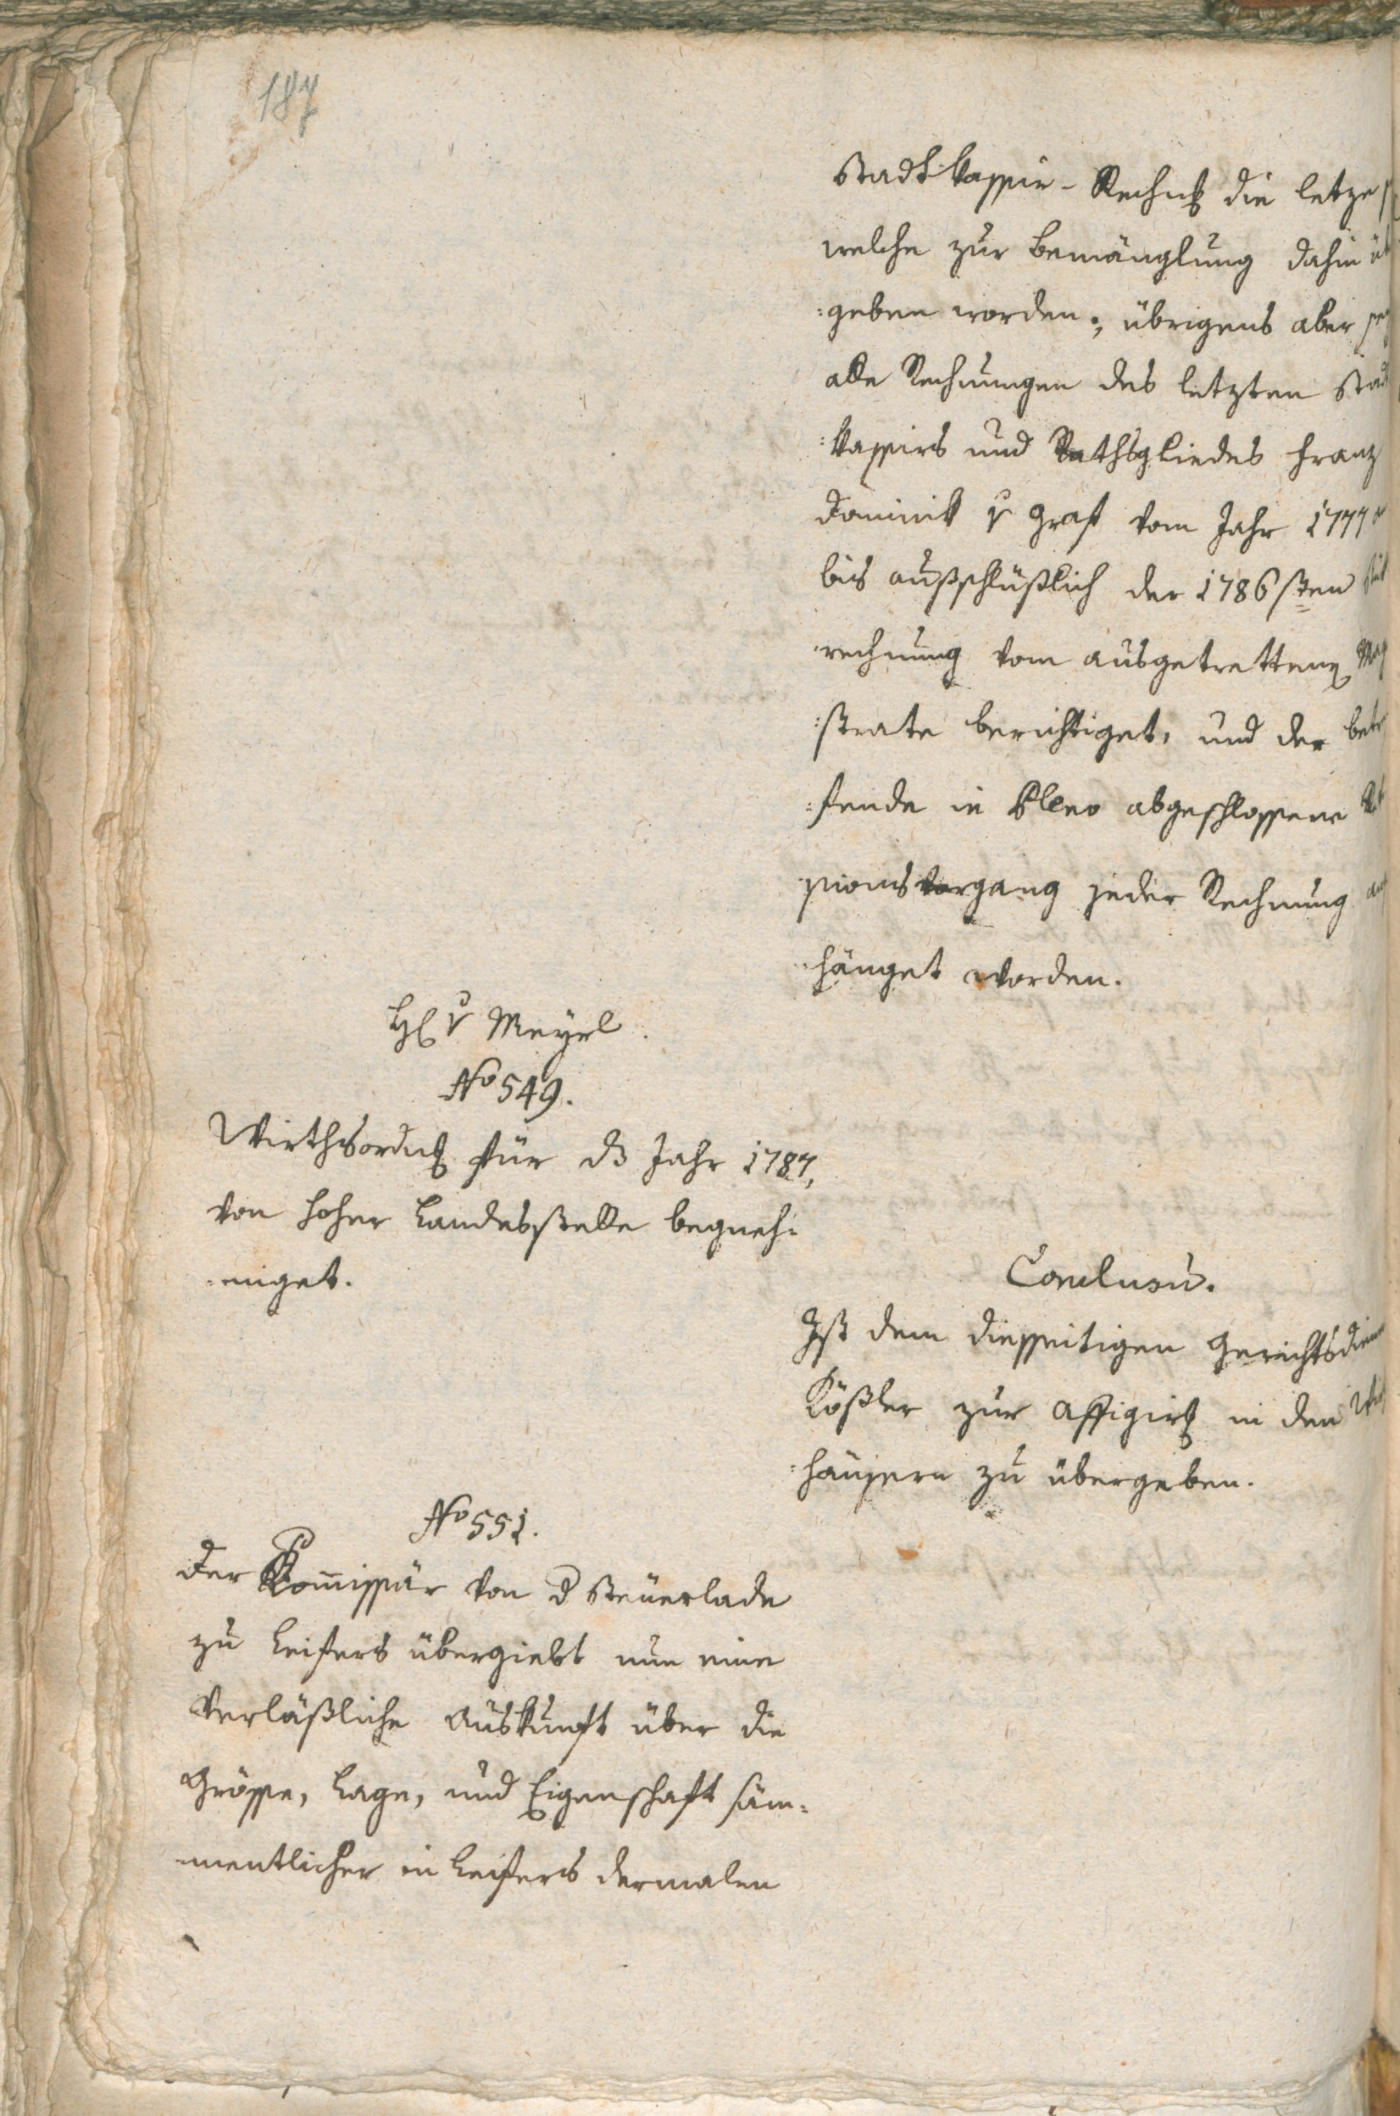 187
Stadtkassir-Rechng die letze
welche zur Bemänglung dahin üb
:geben worden; übrigens aber sey
alle Rechnungen des letzten Stad
:kassirs und Rathsgliedes Franz
Dominik v Graff vom Jahr 1777
bis außschlüßlich der 1786sten
rechnung vom ausgetrettenen Mag
:strate berichtiget, und der betr
:fende in Pleno abgeschlossene
sionsvorgang jeder Rechnung an
:hänget worden.
H v Meyrl.
No 549.
Wirthsordng für ds Jahr 1787,
von hoher Landesstelle begneh:
:miget.
Conclusũ.
Ist dem diesseitigen Gerichtsdien
Kößler zur Affigirg in den Wir
:häusern zu übergeben.
No 551.
Der Kom̃issär von d Steuerlade
zu Leifers übergiebt nun eine
verläßliche Auskunft über die
Grösse, Lage, und Eigenschaft säm:
mentlicher in Leifers dermalen